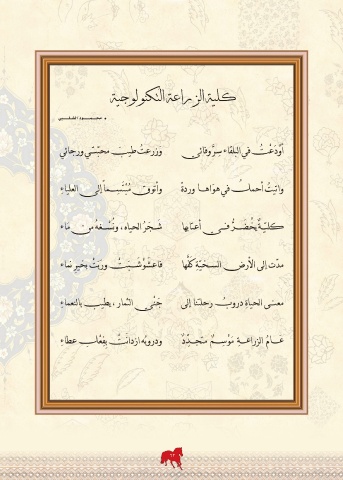 كلية الزراعة التكنولوجية
د. محمود الشلبي
أوْدَعْتُ في البلقاء سِرَّ وفائي وزرعتُ طيبَ محبّتي ورجائي
وأتيتُ أحملُ في هواها وردةً وأتوقُ مُبْتسِماً إلى العلياءِ
كليّةٌ يخْضَرُّ في أعتابها شجَرُ الحياه، ونُسْغهُ من ماءِ
مدّت إلى الأرضِ السخيّةِ كفّها فاعشوْشبَتْ وربَتْ بخيرِ نماء
معنى الحياةِ دروبُ رحلتنا إلى جَنْي الثمار، يطيب بالنعماءِ
عَامُ الزراعةِ مَوْسِمٌ متجدِّدٌ ودروبه ازدانتْ بِفعْلِ عطاءِ